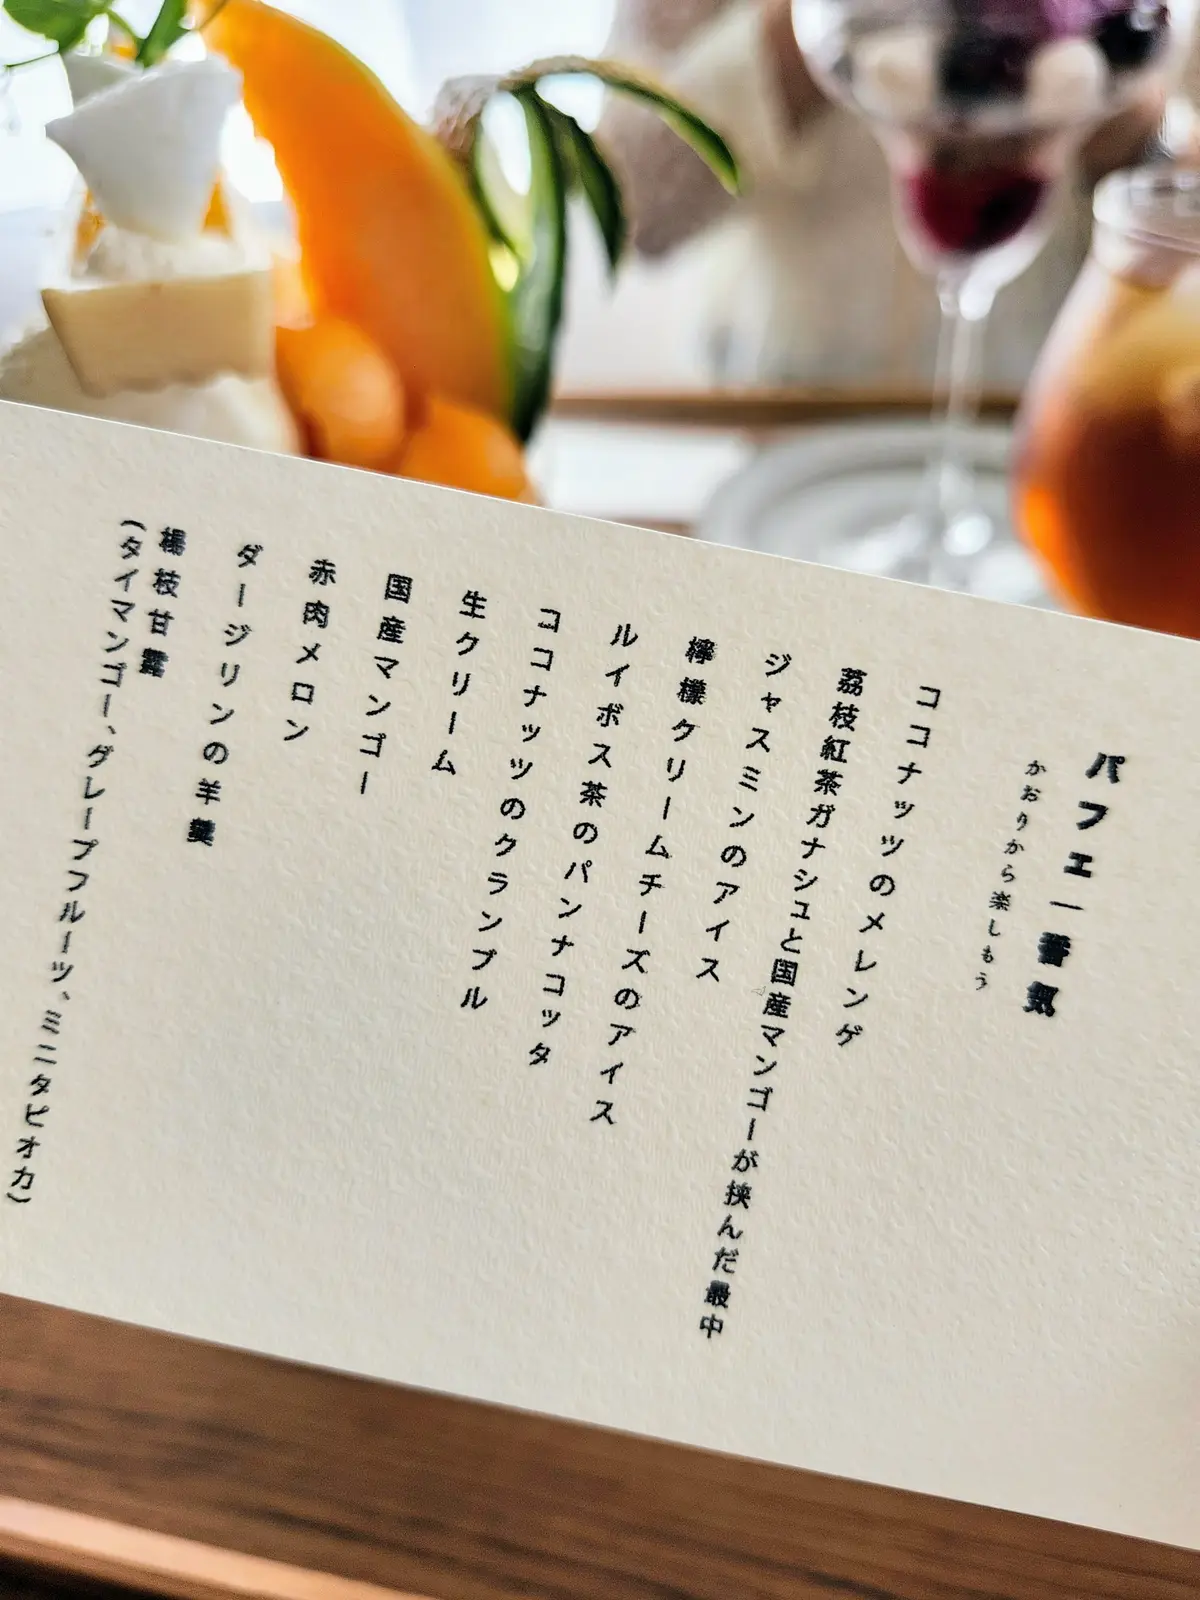 パフェ一番氣
かおりから楽しもう
ココナッツのメレンゲ
荔枝紅茶ガナシュと国産マンゴーが挟んだ最中
ジャスミンのアイス
檸檬クリームチーズのアイス
ルイボス茶のパンナコッタ
ココナッツのクランブル
生クリーム
国産マンゴー
赤肉メロン
ダージリンの羊羹
楊枝甘露
(タイマンゴー、グレープフルーツ、ミニタピオカ)